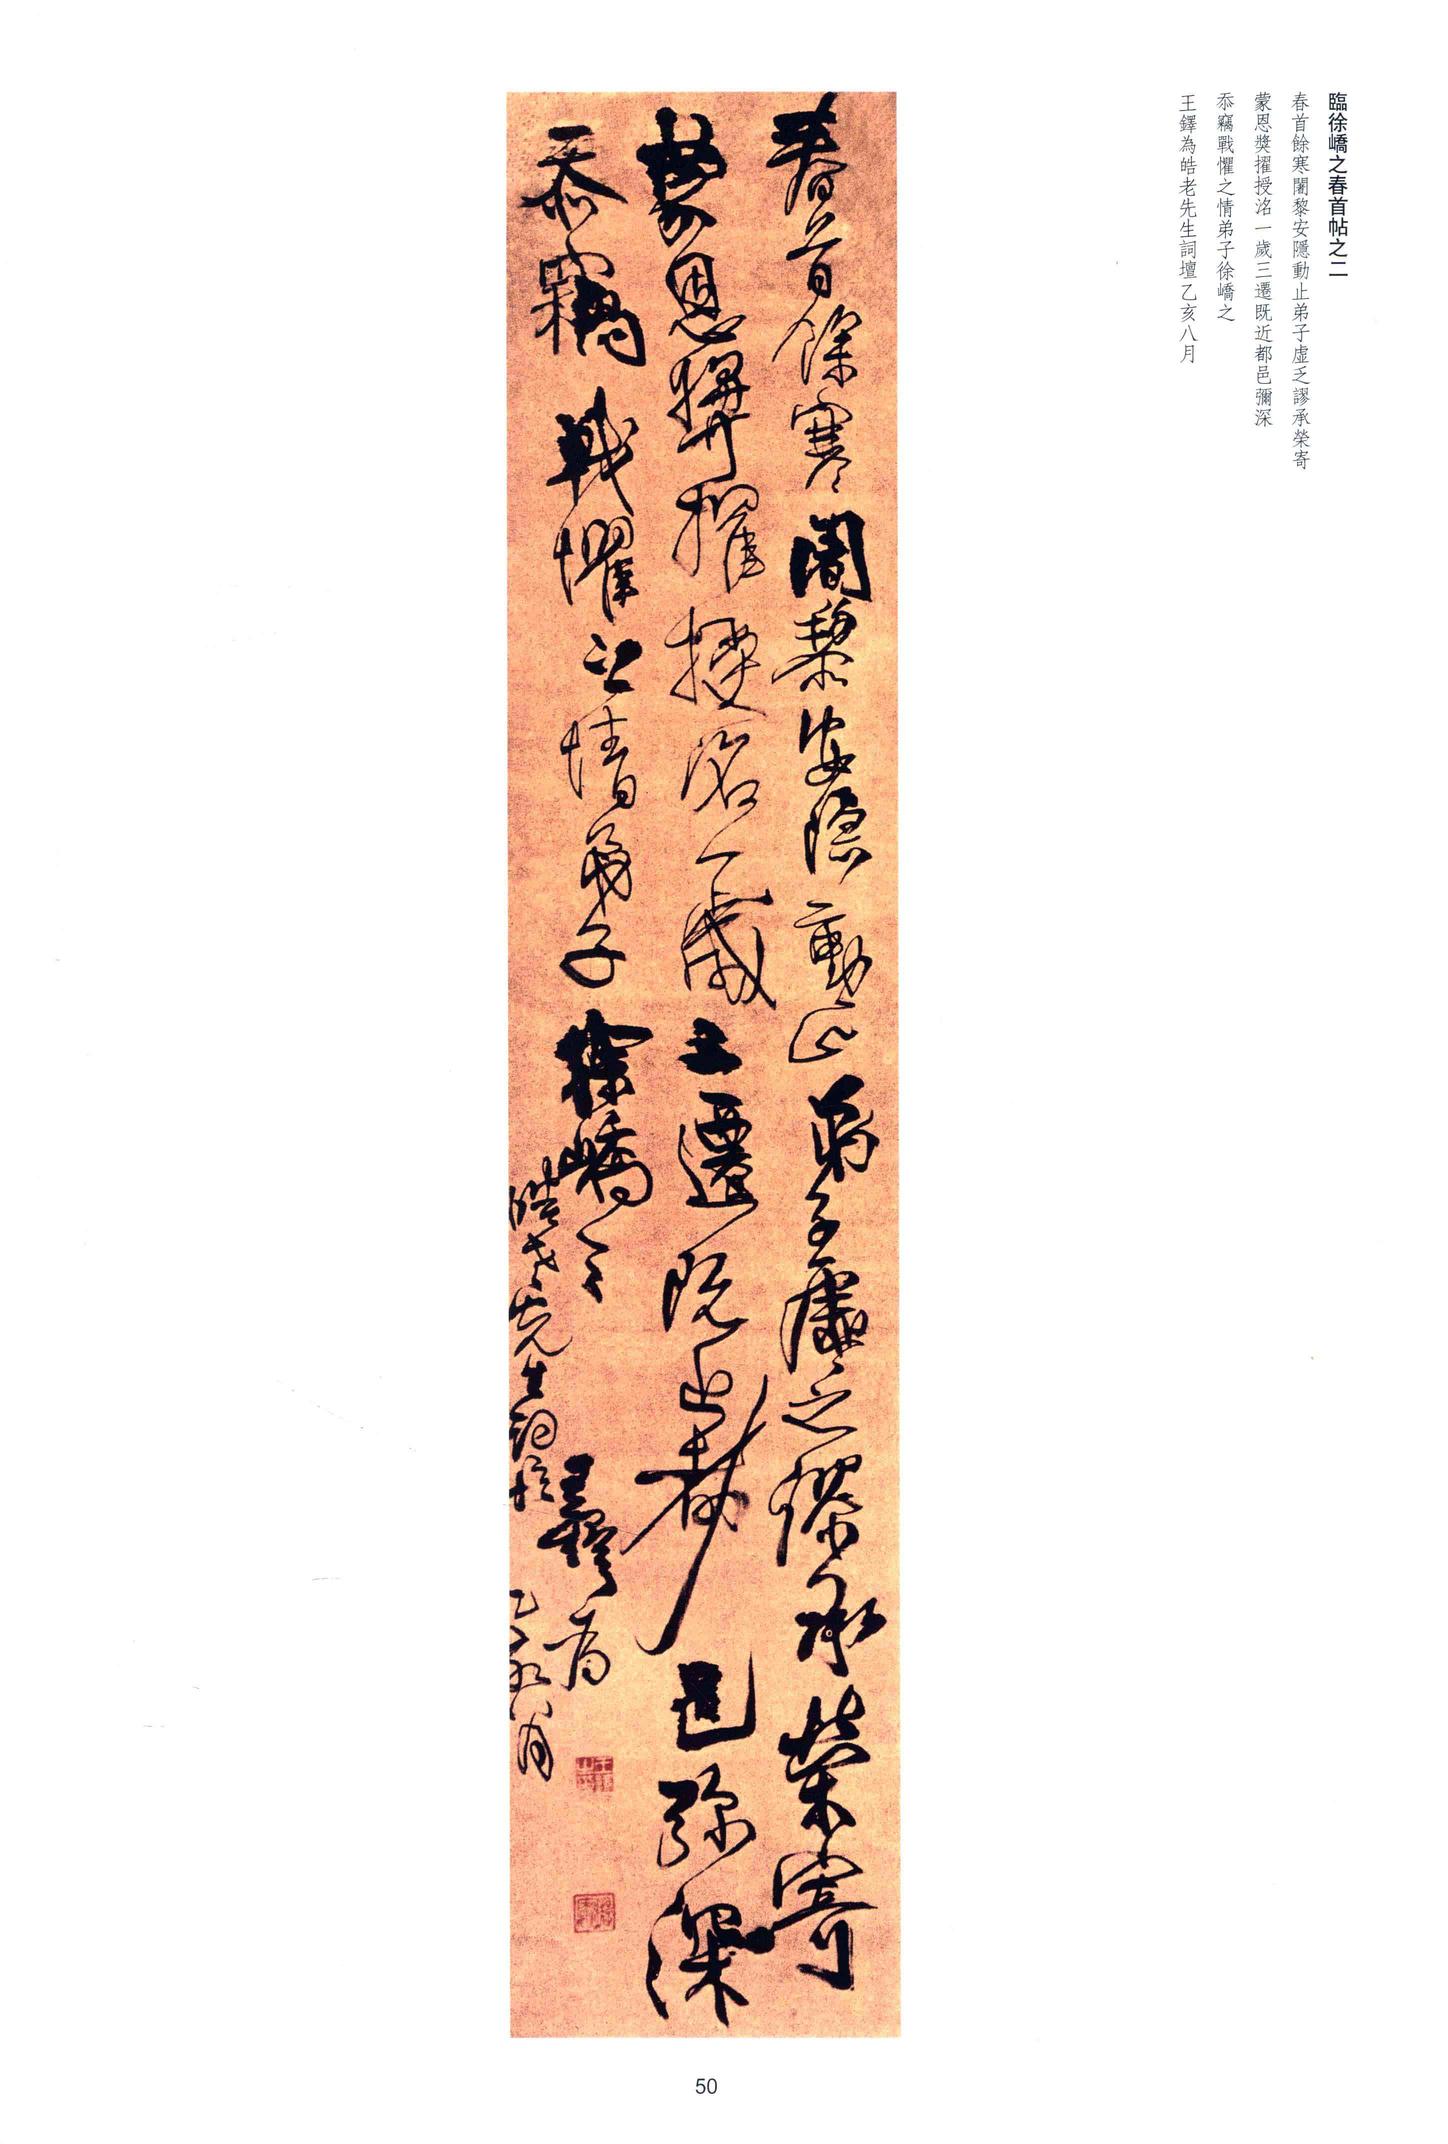 臨徐嶠之春首帖之二
春首餘寒闍黎安隱動止弟子虛乏謬承榮寄
蒙恩獎擢授洺一歲三遷既近都邑彌深
忝竊戰懼之情弟子徐嶠之
王鐸為皓老先生詞壇乙亥八月
春首餘寒闍黎安隱動止弟子虛乏謬承榮寄
蒙恩獎擢授洺一歲三遷既近都邑彌深
忝竊戰懼之情弟子徐嶠之
王鐸為
皓老先生詞壇乙亥八月
50